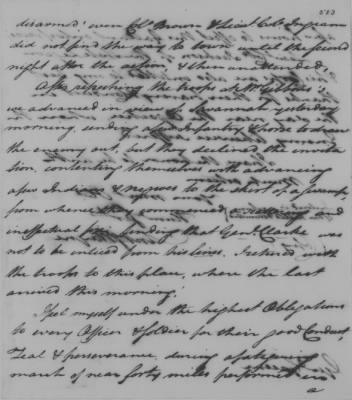 523
disarmed; even Colo. Brown & Lieut. Colo. Ingram
did not find the way to town until the second
night after the action, & then unattended.
After refreshing the troops at Mr. Gibbons's,
we advanced in view of Savannah yesterday
morning, sending a few Infantry & horse to draw
the enemy out, but they declined the invita-
tion, contenting themselves with advancing
a few Indians & negroes to the skirt of a swamp,
from whence they commenced and
ineffectual fire. finding that Genl. Clarke was
not to be enticed from his lines, I retired with
the troops to this place, where the last
arrived this morning.
I feel myself under the highest Obligations
to every Officer & Soldier for their good Conduct,
Zeal & perseverance, during a fatiguing
march of near forty miles performed in
a